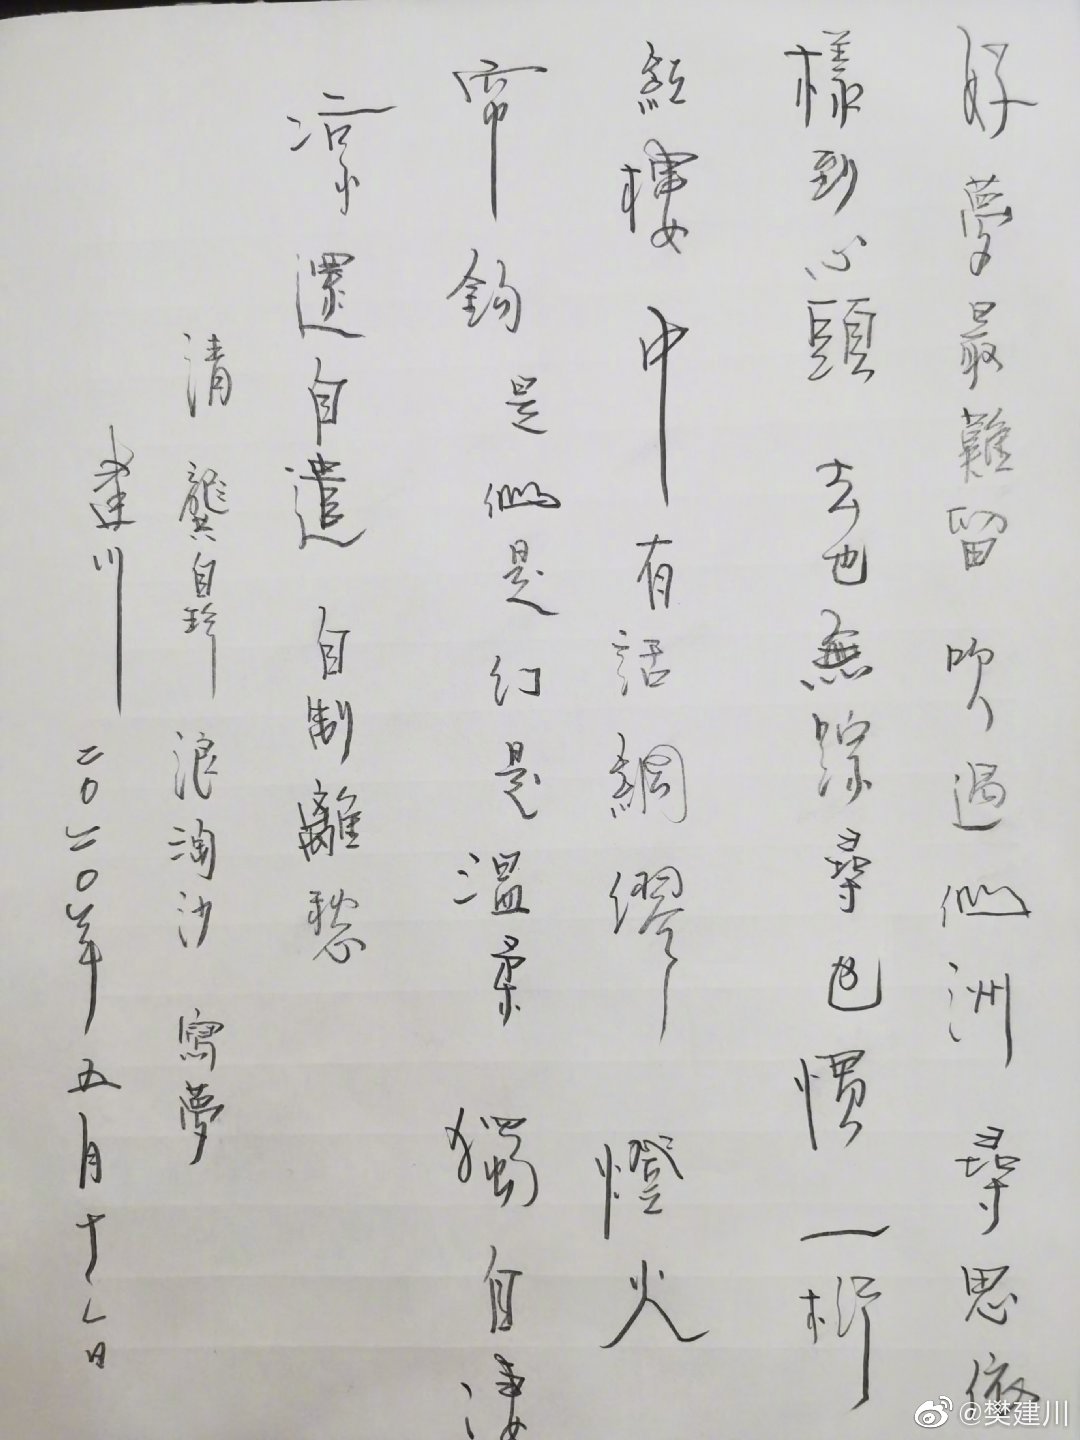 好夢最難留 吹過仙洲 尋思依
樣到心頭 去也無踪尋也慣 一桁
紅樓中有話綢繆 燈火
帘鈎是仙是幻是溫柔 獨自凄
凉還自遣 自制離愁
清 龔自珍 浪淘沙 寫夢
建川 二〇二〇年五月十八日
@樊建川